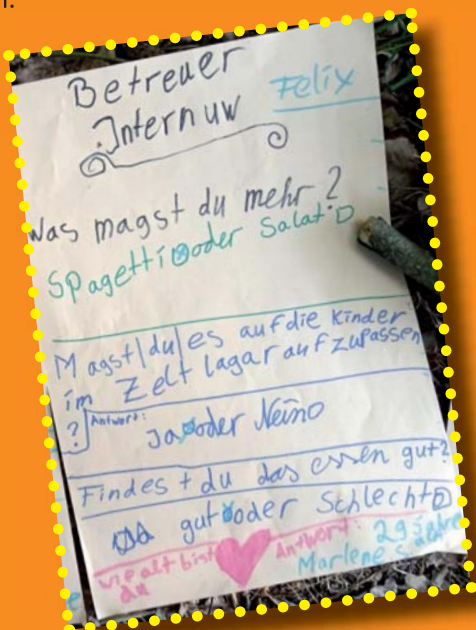 Betreuer
Internuw
Felix
Was magst du mehr?
Spagetti oder Salat
Magst du es auf die Kinder
im Zelt lagar aufzupassen
?
Antwort:
Ja oder Nein
Findest du das essen gut?
gut oder Schlecht
wie alt bist
du
Antwort: 29 jahre
Marlene